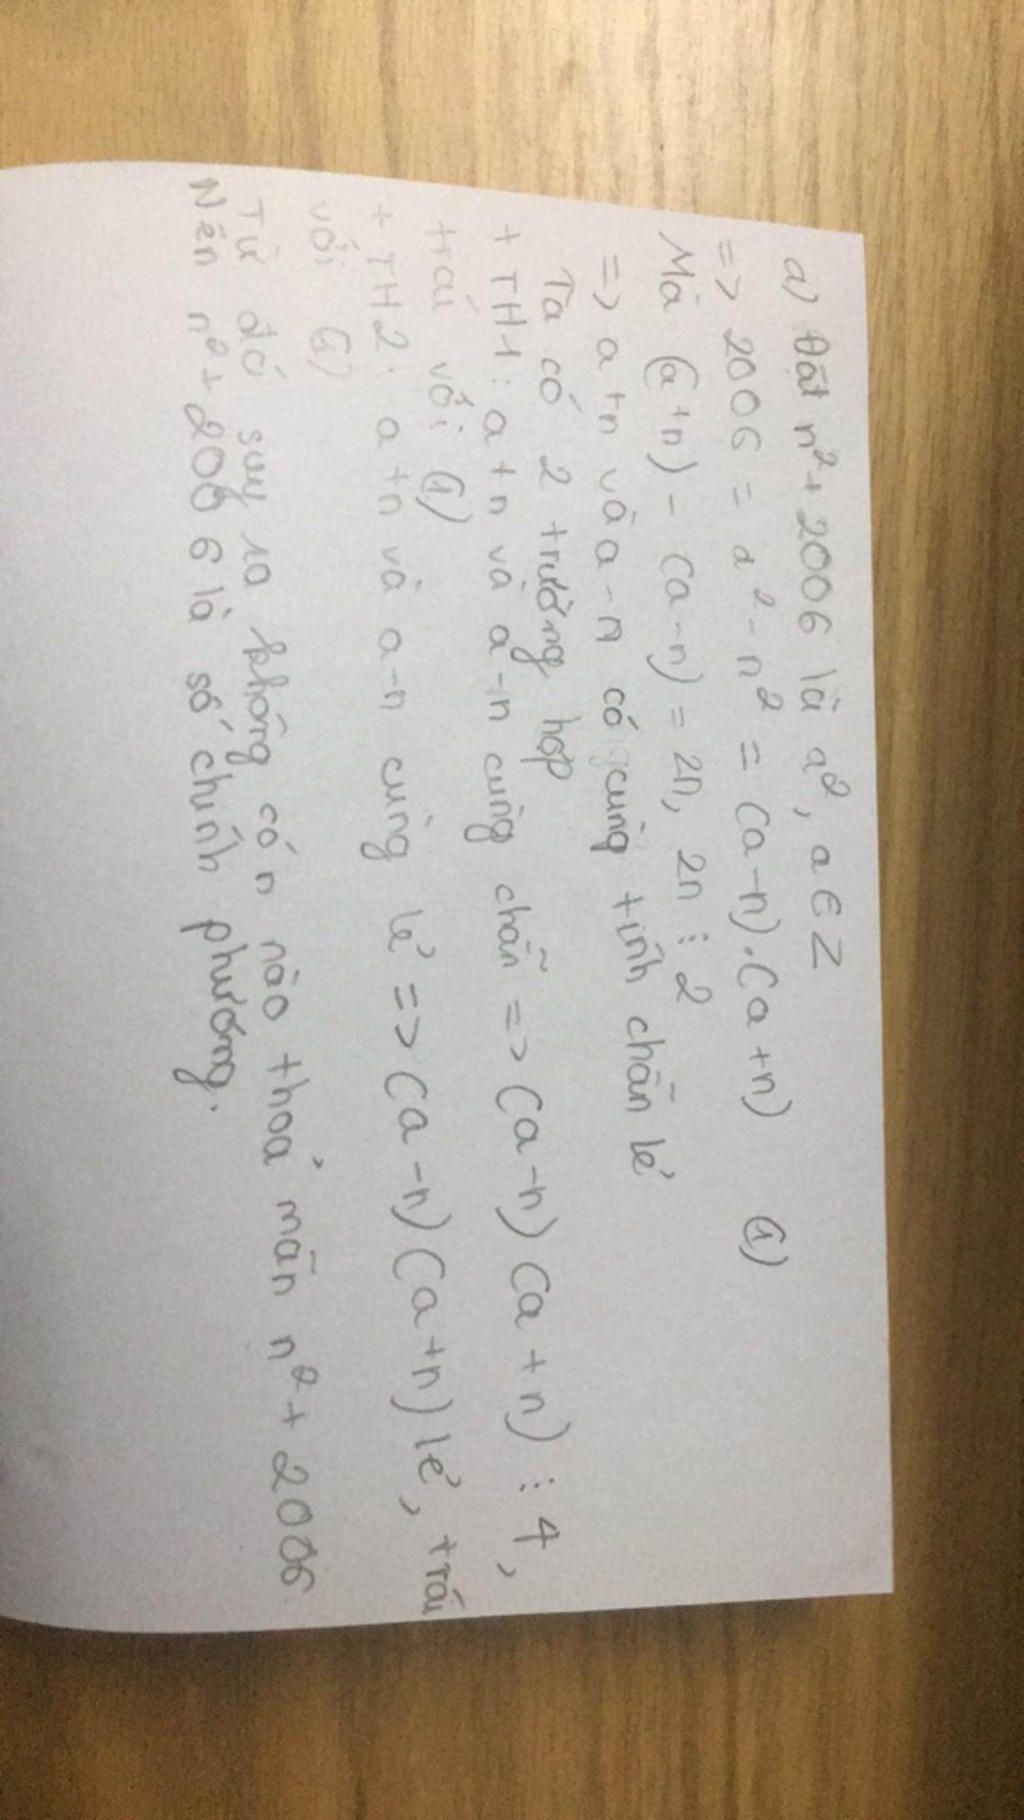 a) Đặt n²+2006 là a², a∈Z
=> 2006 = a²-n² = (a-n).(a+n) (1)
Mà (a+n) - (a-n) = 2n, 2n ⋮ 2
=> a+n và a-n có cùng tính chẵn lẻ
Ta có 2 trường hợp
+ TH1: a+n và a-n cùng chẵn => (a-n)(a+n) ⋮ 4,
trái với (1)
+ TH2: a+n và a-n cùng lẻ => (a-n)(a+n) lẻ, trái
với (1)
Từ đó suy ra không có n nào thoả mãn n²+2006
Nên n²+2006 là số chính phương.